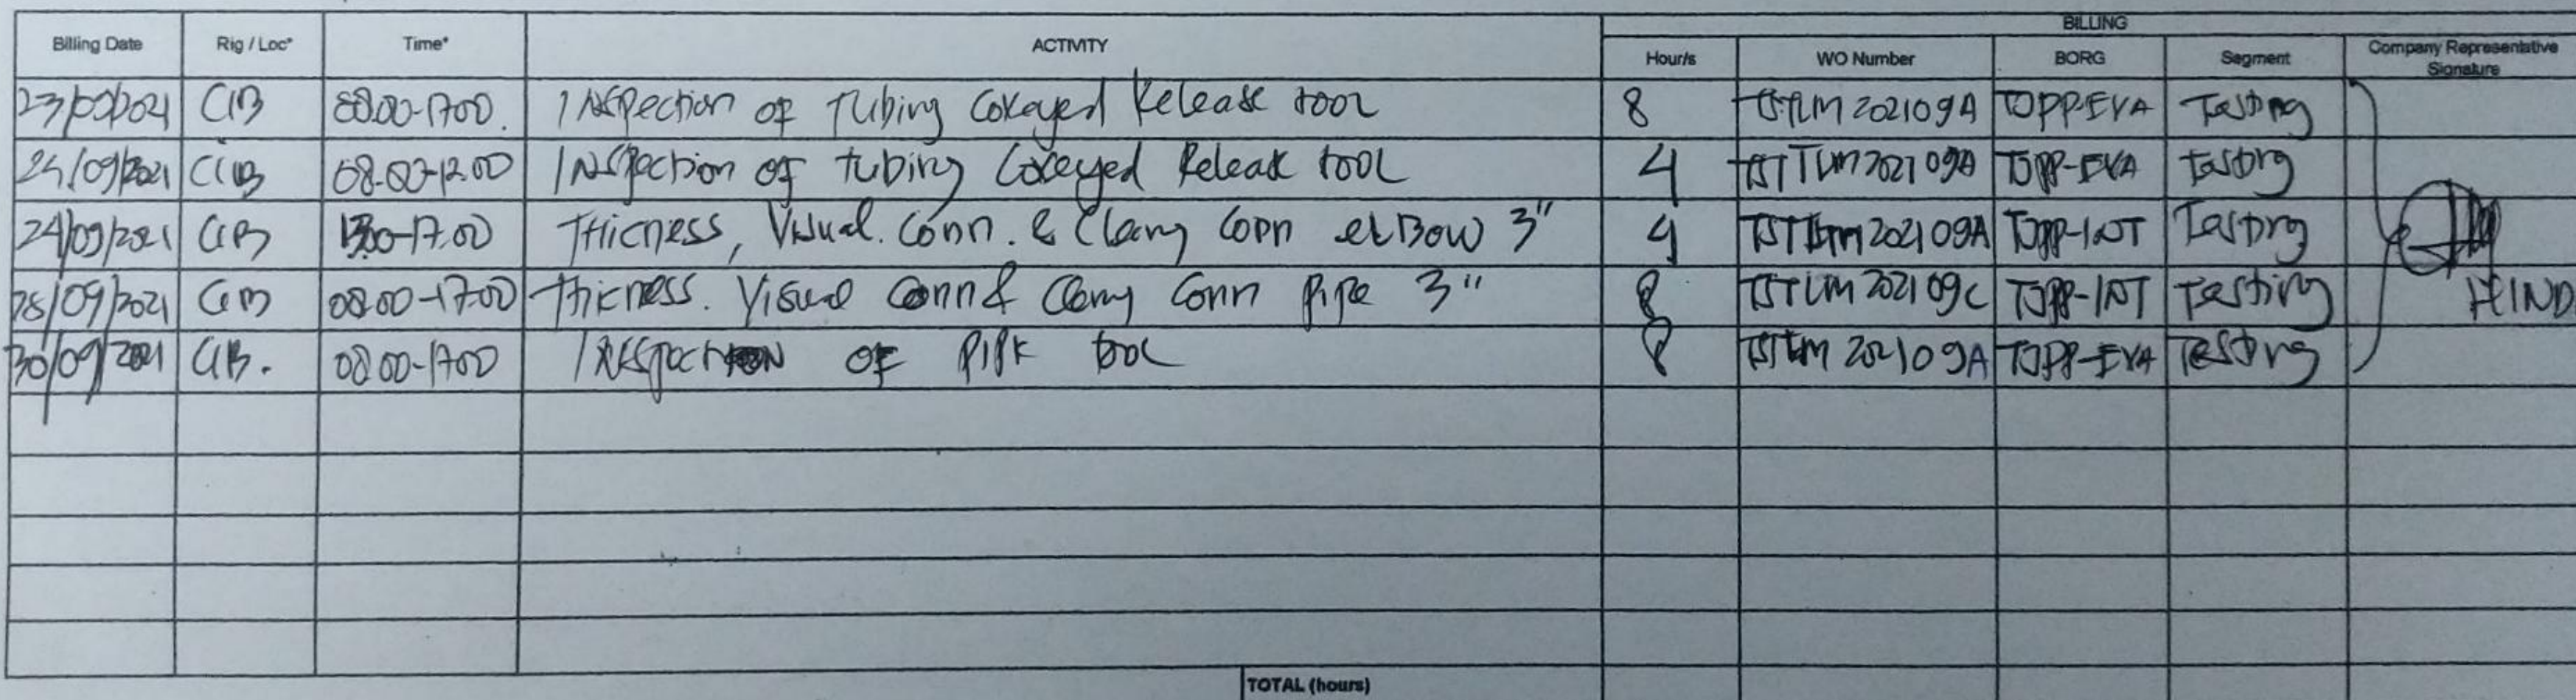 BILLING
Billing Date Rig / Loc* Time* ACTIVITY Hour/s WO Number BORG Segment Company Representative Signature
23/09/2021 CIB 08.00-1700. Inspection of Tubing Release tool 8 202109A TOPP-EVA Testing
24/09/2021 CIB 08.00-12.00 Inspection of tubing Release tool 4 202109A TOPP-EVA Testing
24/09/2021 CIB 1300-17.00 Thicness, Visual. Conn. & Conn elbow 3" 4 202109A TOPP-INT Testing
28/09/2021 CIB 08.00-17.00 thicness. Visual Conn & Conn Pipe 3" 8 202109C TOPP-INT Testing
30/09/2021 CIB. 08.00-1700 Inspection OF tool 8 202109A TOPP-EVA Testing
HIND
TOTAL (hours)